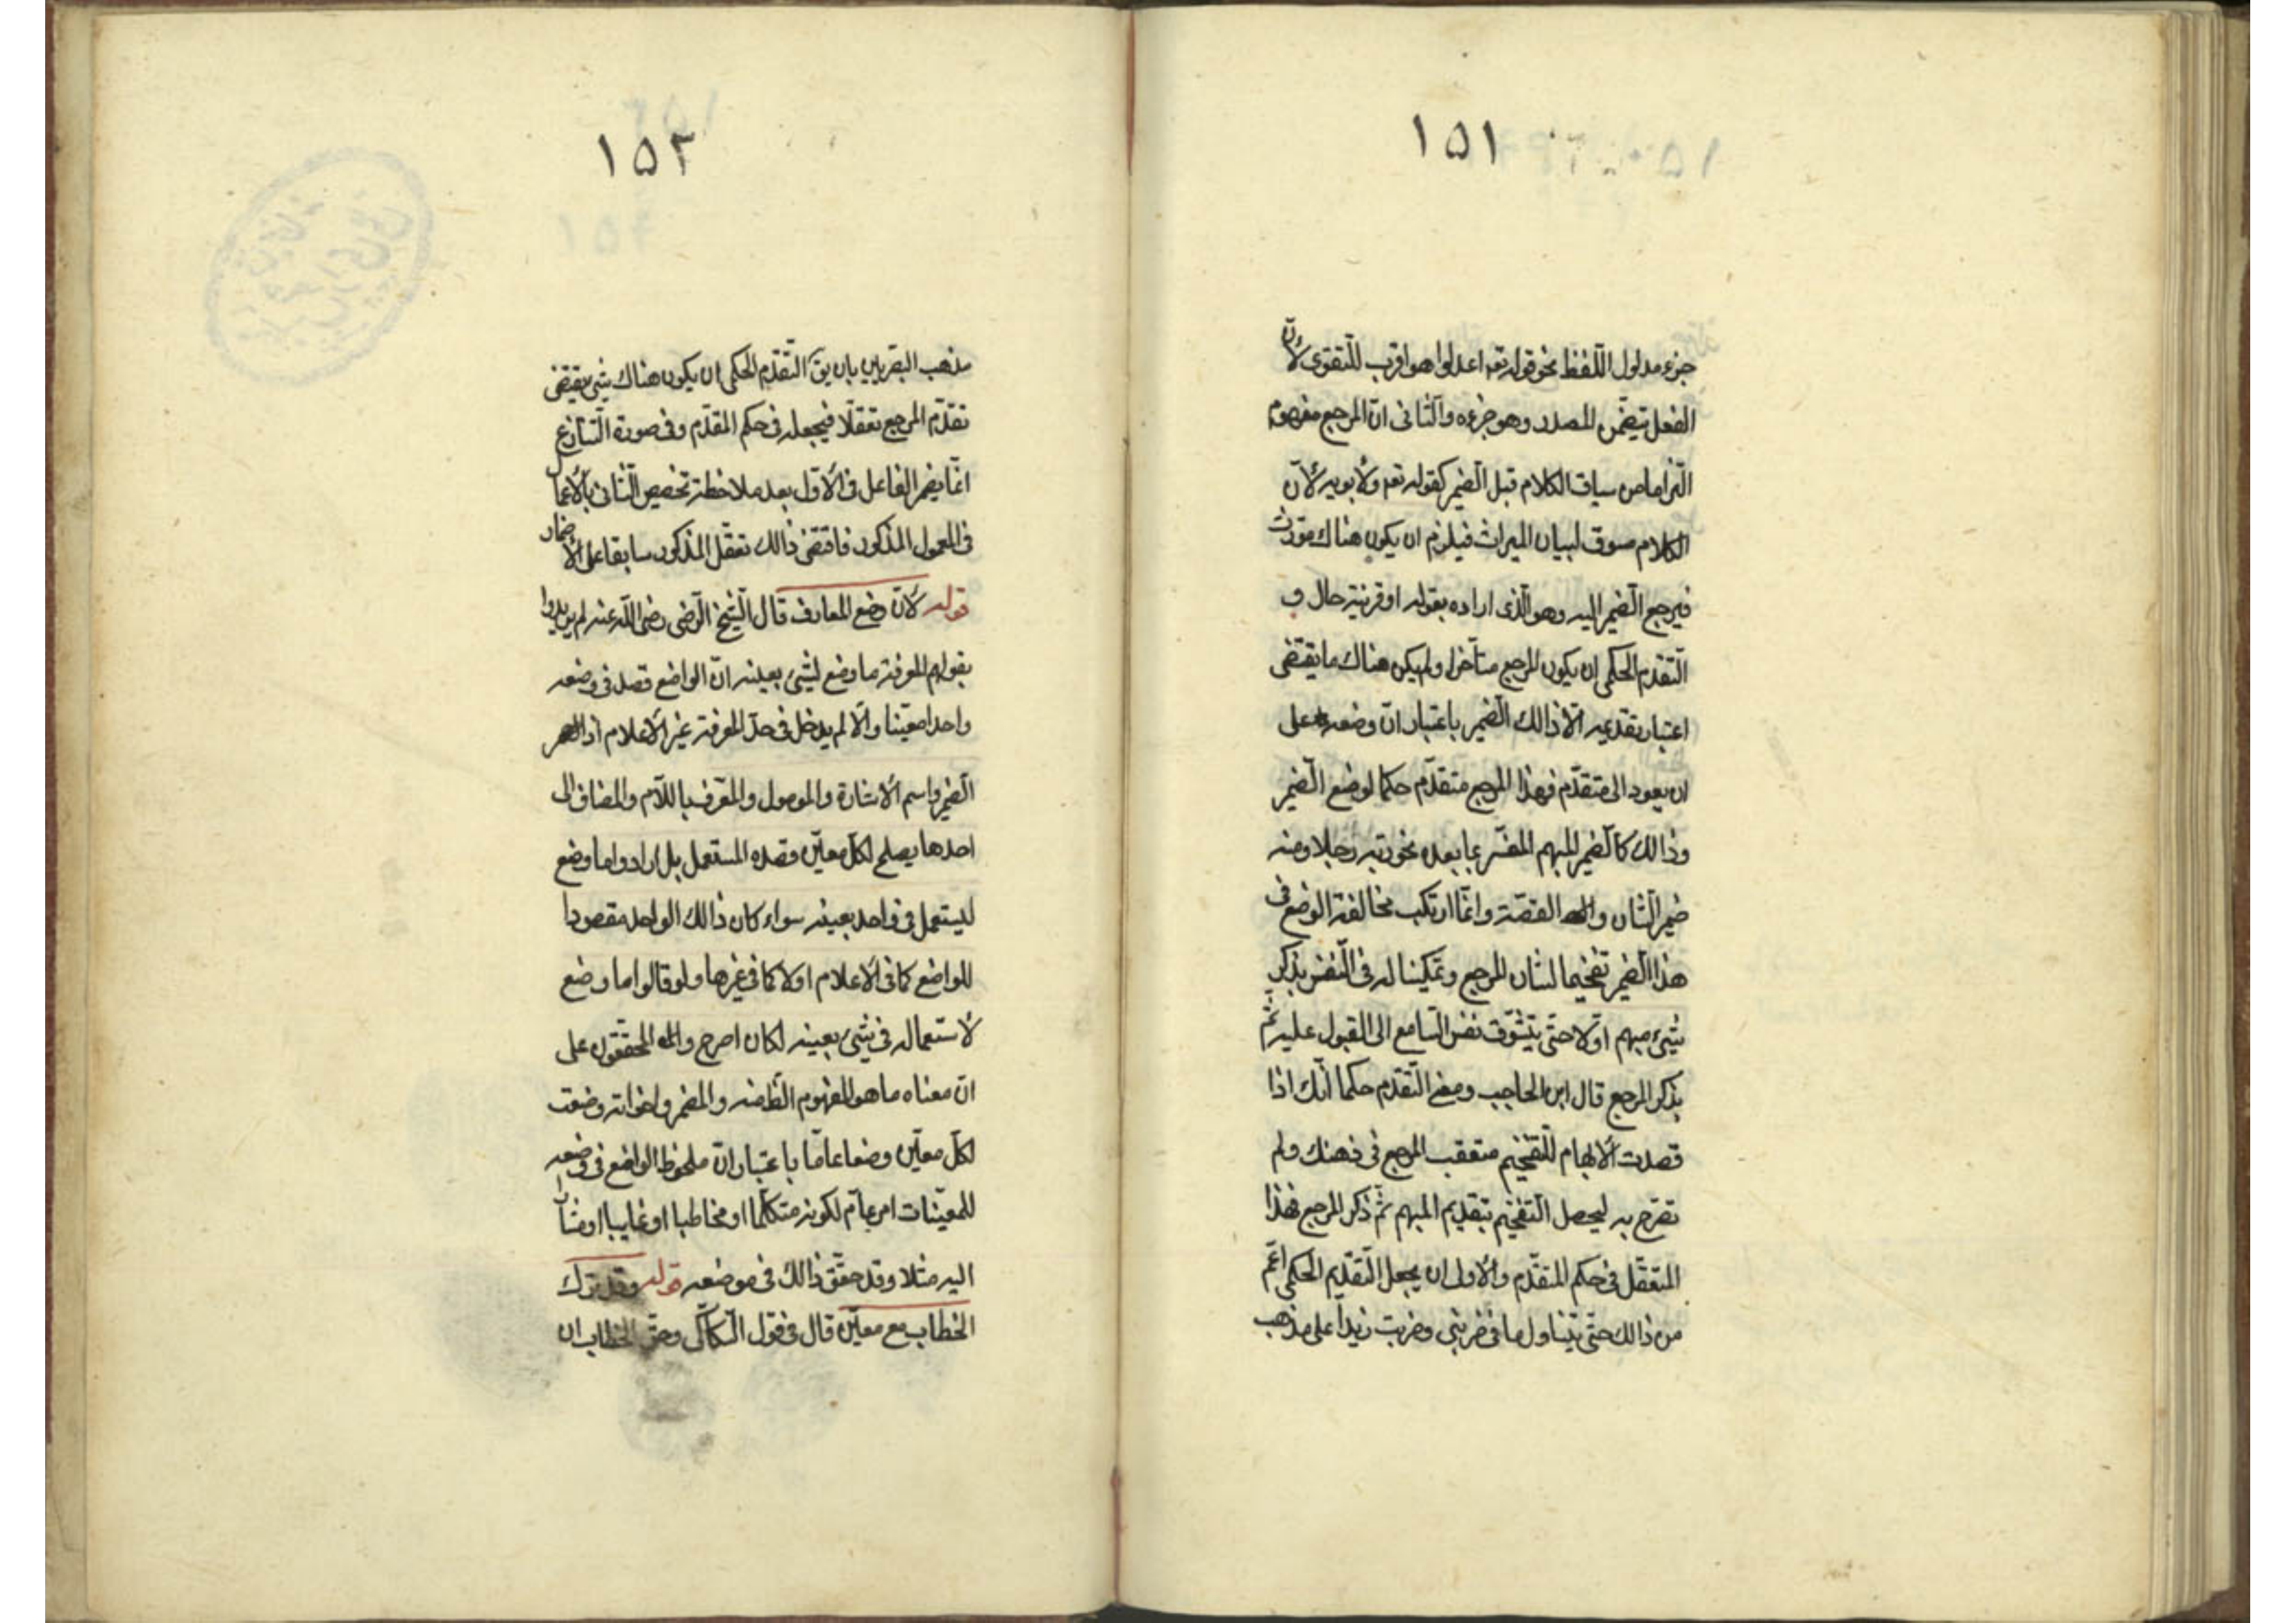 ١٥١
جزء مدلول اللّفظ نحو قوله تعه اعدلوا هو اقرب للتّقوى لأنّ
الفعل يتضمّن المصدر وهو جزءه والثّانى انّ المرجع مفهوم
التزاما من سياق الكلام قبل الضّمير كقوله تعه ولأبويه لأنّ
الكلام مسوق لبيان الميراث فيلزم ان يكون هناك مورّث
فيرجع الضّمير اليه وهو الّذى اراده بقوله او قرينة حال و
التّقدّم الحكمى ان يكون المرجع متأخرا ولم يكن هناك ما يقتضى
اعتبار تقديمه الّا ذالك الضّمير باعتبار انّ وضعه على
ان يعود الى متقدّم فهذا المرجع متقدّم حكما لوضع الضّمير
وذالك كالضّمير المبهم المفسّر بما بعده نحو ربّه رجلا ومنه
ضمير الشّان والقصّة وانّما ارتكب مخالفة الوضع فى
هذا الضّمير تفخيما لشان المرجع وتمكينا له فى النّفس بذكر
شيئ مبهم اوّلا حتّى يتشوّق نفس السّامع الى القبول عليه ثمّ
بذكر المرجع قال ابن الحاجب ومعنى التّقدّم حكما انّك اذا
قصدت الأبهام للتّفخيم متعقب المرجع فى ذهنك ولم
تصرّح به ليحصل التّفخيم بتقديم المبهم ثمّ ذكر المرجع فهذا
المتعقّل فى حكم المتقدّم والأولى ان يجعل التّقديم الحكمى اعّم
من ذالك حتّى يتناول ما فى ضربنى وضربت زيدا على مذهب
١٥٢
مذهب البصريين بان يق التّقدّم الحكمى ان يكون هناك شيئ يقتضى
تقدّم المرجع تعقّلا فيجعله فى حكم المقدّم وفى صورة التّنازع
انّما يضمر الفاعل فى الأوّل بعد ملاحظة تخصيص الثّانى بالأعمال
فى المعمول المذكور فاقتضى ذالك تعقّل المذكور سابقا على الأضمار
قوله لأنّ وضع المعارف قال الشّيخ الرّضى رضى اللّه عنه لم يريدوا
بقولهم المعرفة ما وضع لشيئ بعينه انّ الواضع قصد فى وضعه
واحدا معيّنا والّا لم يدخل فى حدّ المعرفة غير الأعلام اذ
الضّمير واسم الأشارة والموصول والمعرّف باللّام والمضاف الى
احدها يصلح لكلّ معيّن قصده المستعمل بل ارادوا ما وضع
ليستعمل فى واحد بعينه سواء كان ذالك الواحد مقصودا
للواضع كما فى الأعلام او لا كما فى غيرها ولو قالوا ما وضع
لأستعماله فى شيئ بعينه لكان اصرح والمحقّقون على
انّ معناه ما هو المفهوم الظّ منه والمضمر واخواته وضعت
لكلّ معيّن وضعا عامّا باعتبار انّ ملحوظ الواضع فى وضعه
للمعيّنات امر عامّ لكونه متكلّما او مخاطبا او غايبا او مشارا
اليه مثلا وقد حقّق ذالك فى موضعه قوله وقد ترك
الخطاب مع معيّن قال فى قول السّكاكى وحقّ الخطاب ان